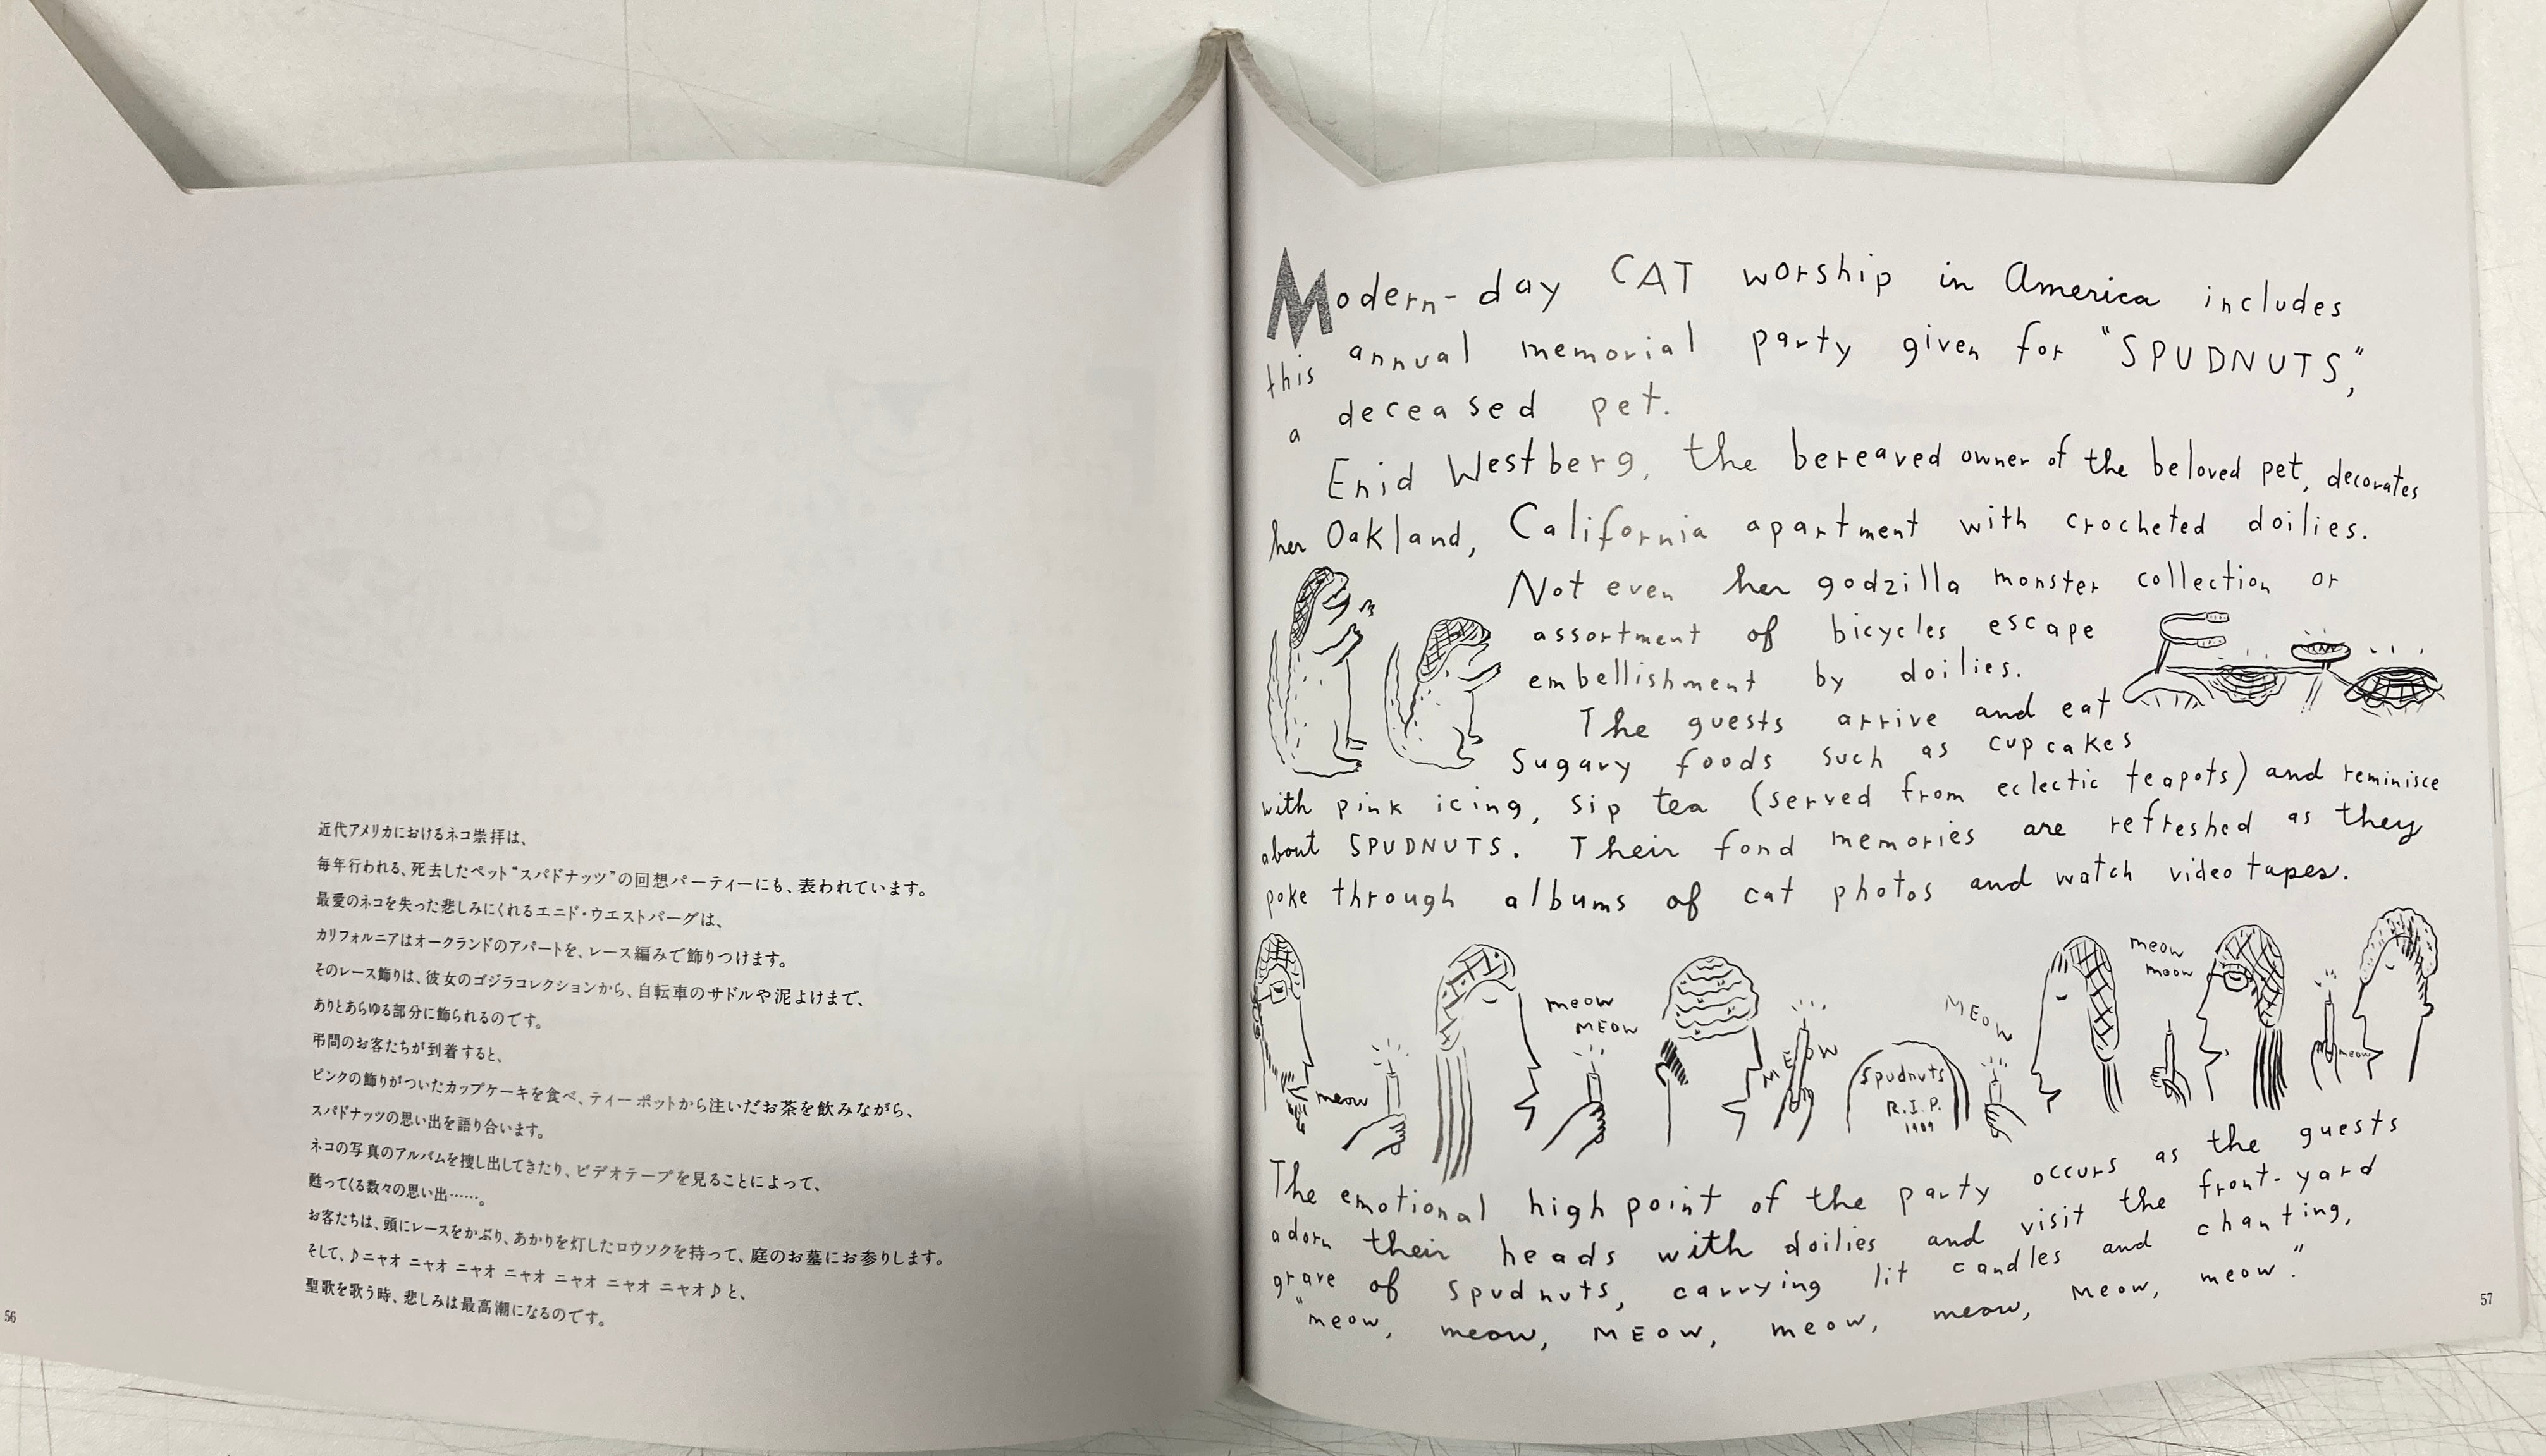 近代アメリカにおけるネコ崇拝は、
毎年行われる、死去したペット“スパドナッツ”の回想パーティーにも、表われています。
最愛のネコを失った悲しみにくれるエニド・ウエストバーグは、
カリフォルニアはオークランドのアパートを、レース編みで飾りつけます。
そのレース飾りは、彼女のゴジラコレクションから、自転車のサドルや泥よけまで、
ありとあらゆる部分に飾られるのです。
弔問のお客たちが到着すると、
ピンクの飾りがついたカップケーキを食べ、ティーポットから注いだお茶を飲みながら、
スパドナッツの思い出を語り合います。
ネコの写真のアルバムを捜し出してきたり、ビデオテープを見ることによって、
甦ってくる数々の思い出……。
お客たちは、頭にレースをかぶり、あかりを灯したロウソクを持って、庭のお墓にお参りします。
そして、♪ニャオ ニャオ ニャオ ニャオ ニャオ ニャオ ニャオ♪と、
聖歌を歌う時、悲しみは最高潮になるのです。
56
Modern-day CAT worship in America includes
this annual memorial party given for "SPUDNUTS,"
a deceased pet.
Enid Westberg, the bereaved owner of the beloved pet, decorates
her Oakland, California apartment with crocheted doilies.
Not even her godzilla monster collection or
assortment of bicycles escape
embellishment by doilies.
The guests arrive and eat
Sugary foods such as cupcakes
with pink icing, sip tea (served from eclectic teapots) and reminisce
about SPUDNUTS. Their fond memories are refreshed as they
poke through albums of cat photos and watch video tapes.
meow
meow
MEOW
MEOW
Spudnuts
R.I.P.
1989
MEOW
meow
meow
meow
The emotional high point of the party occurs as the guests
adorn their heads with doilies and visit the front-yard
grave of Spudnuts, carrying lit candles and chanting,
"meow, meow, MEOW, meow, meow, Meow, meow."
57